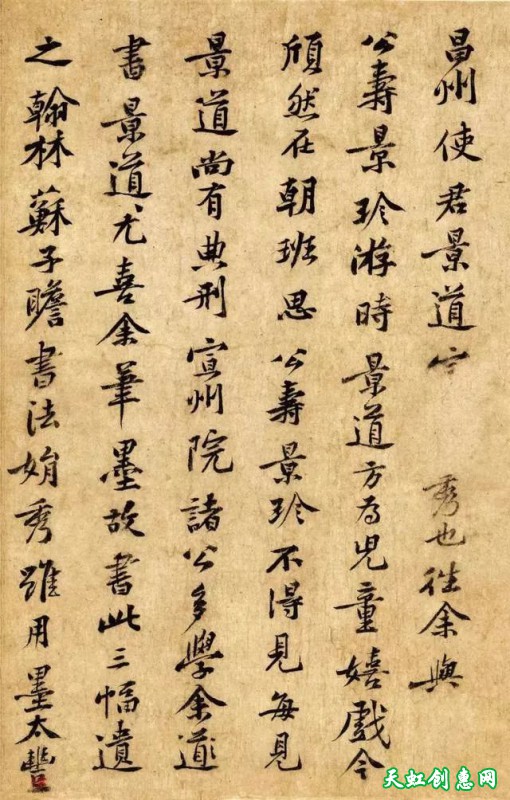 昌州使君景道 秀也往余與
公壽景珍游時景道方為兒童嬉戲今
頎然在朝班思公壽景珍不得見每見
景道尚有典刑宣州院諸公多學余
書景道尤喜余筆墨故書此三幅遺
之翰林蘇子瞻書法娟秀雖用墨太豐
天虹创惠网